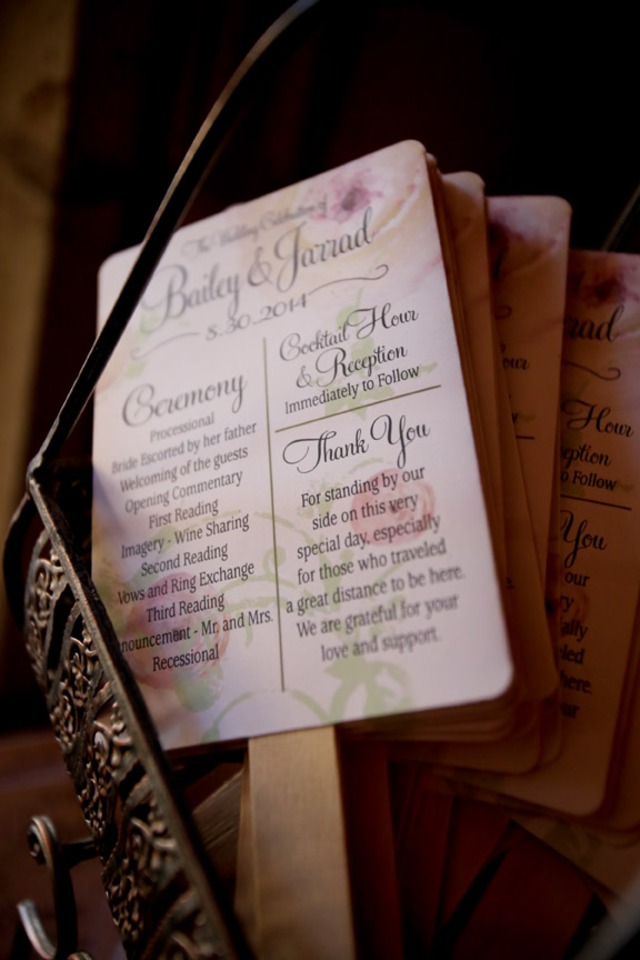 The Wedding Celebration of
Bailey & Jarrad
8.30.2014
Ceremony
Processional
Bride Escorted by her father
Welcoming of the guests
Opening Commentary
First Reading
Imagery - Wine Sharing
Second Reading
Vows and Ring Exchange
Third Reading
nouncement - Mr. and Mrs.
Recessional
Cocktail Hour
& Reception
Immediately to Follow
Thank You
For standing by our
side on this very
special day, especially
for those who traveled
a great distance to be here.
We are grateful for your
love and support.
our
rad
Hour
eption
o Follow
You
our
ry
ially
eled
here.
ur